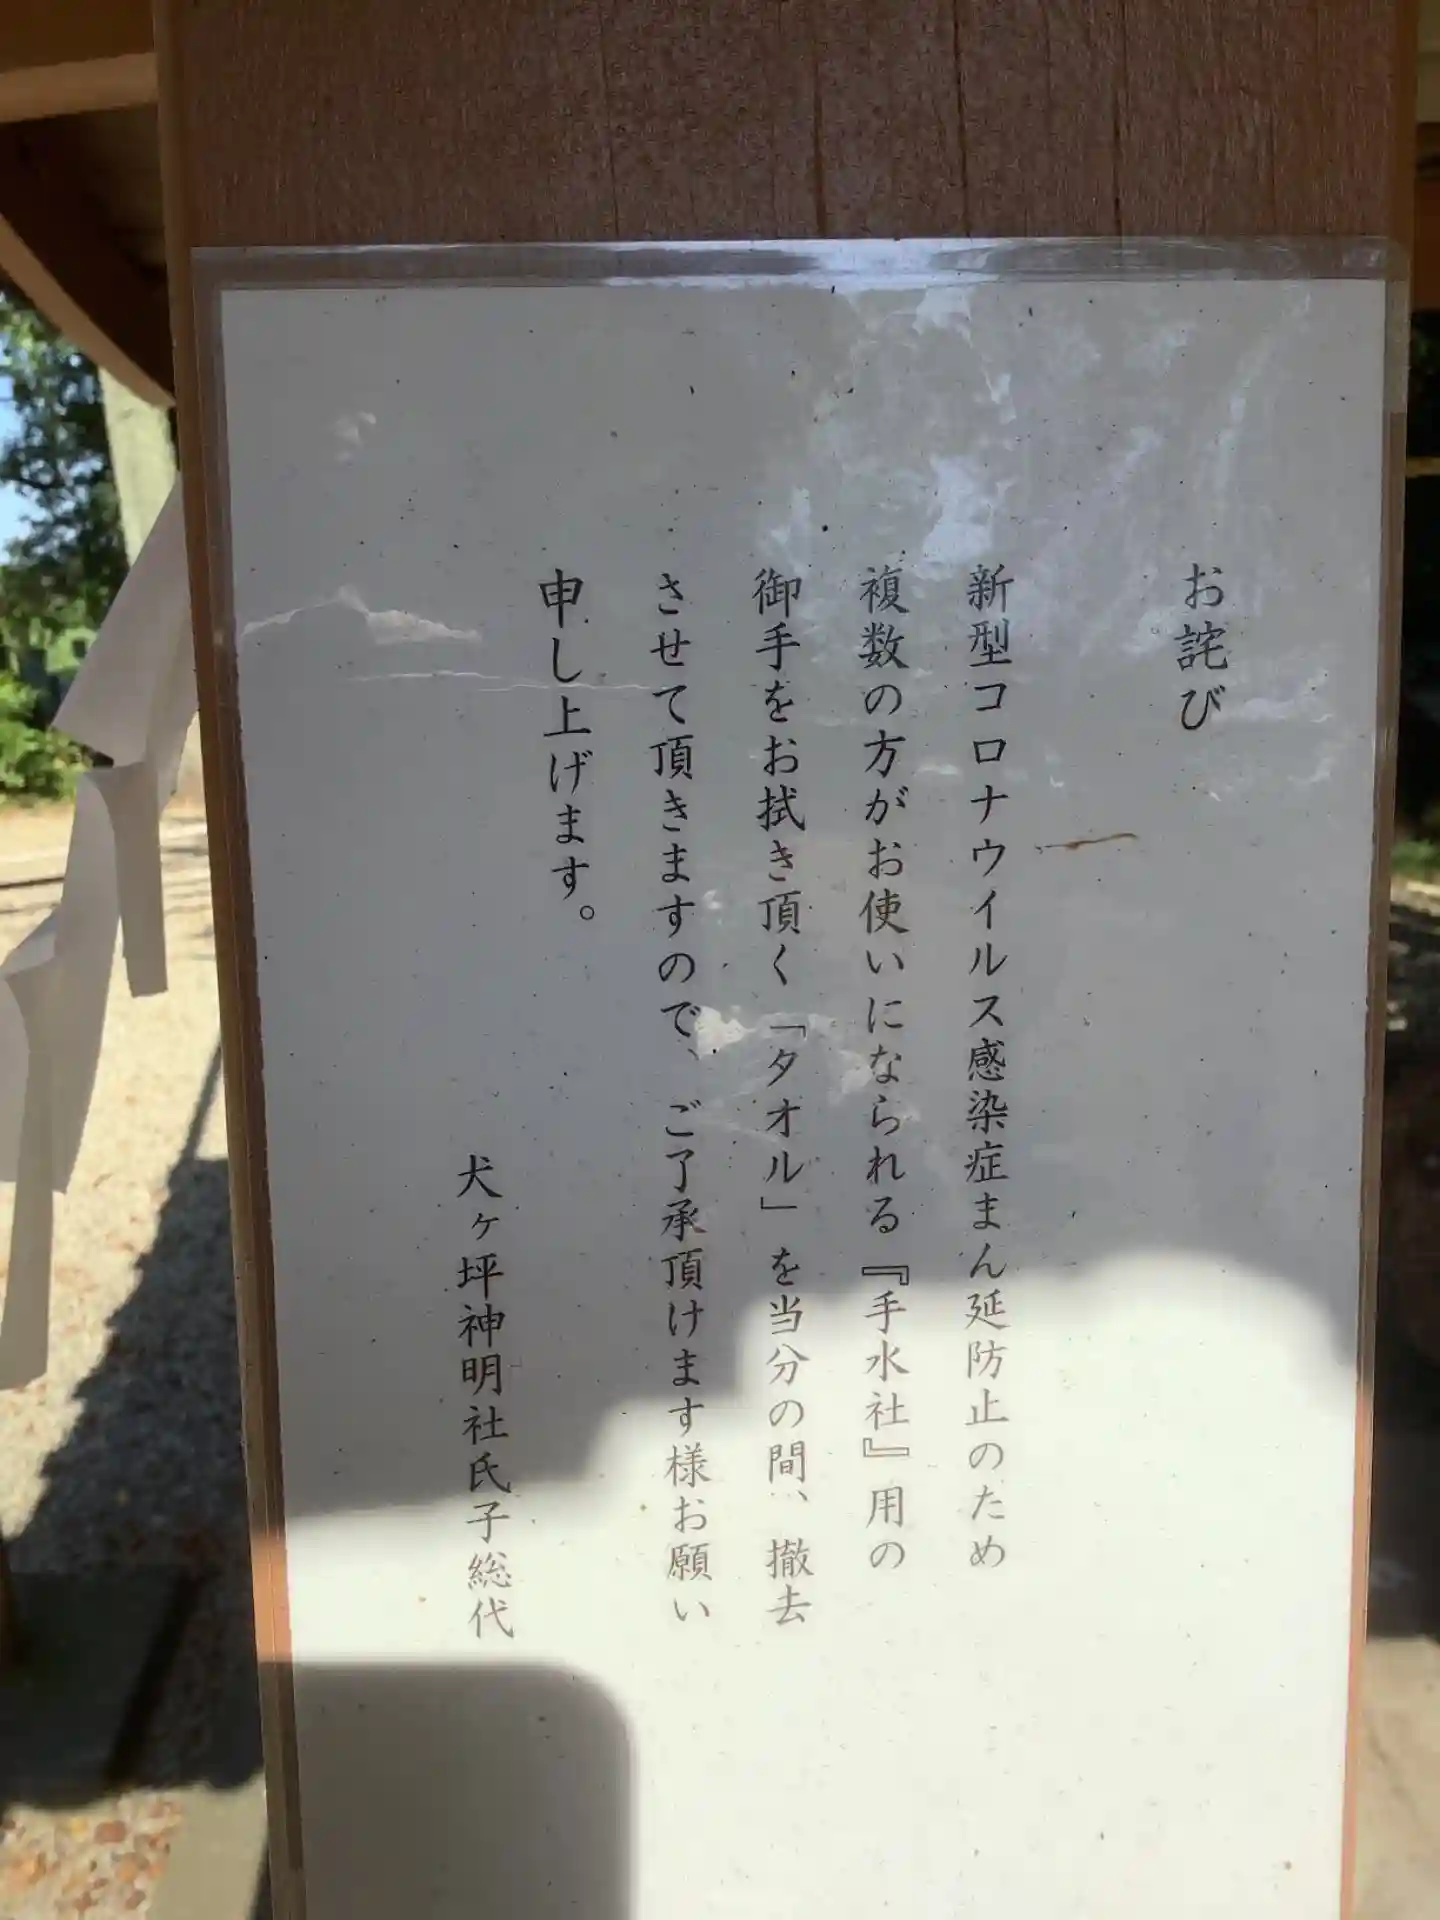 お詫び
新型コロナウイルス感染症まん延防止のため
複数の方がお使いになられる『手水社』用の
御手をお拭き頂く「タオル」を当分の間、撤去
させて頂きますので、ご了承頂けます様お願い
申し上げます。
犬ヶ坪神明社氏子総代